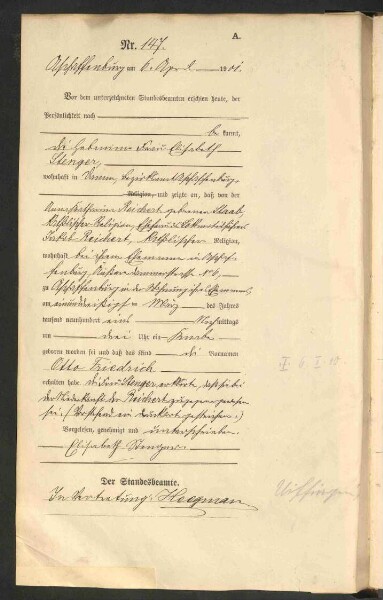 A.
Nr. 147.
Aschaffenburg am 6. April 1901.
Vor dem unterzeichneten Standesbeamten erschien heute, der
Persönlichkeit nach
be kannt,
die Hebamme Frau Elisabeth
Stenger,
wohnhaft in Damm, Bezirksamt Aschaffenburg,
Religion, und zeigte an, daß von der
Reichert geborenen Staab,
katholischer Religion, Ehefrau des
Jakob Reichert, katholischer Religion,
wohnhaft bei ihrem Ehemanne in Aschaf-
fenburg, № 6,
zu Aschaffenburg in der Wohnung ihres Ehemannes,
am einunddreißigsten März des Jahres
tausend neunhundert eins Nachmittags
um drei Uhr ein Knabe
geboren worden sei und daß das Kind die Vornamen
Otto Friedrich
erhalten habe. Die Frau Stenger erklärte, daß sie bei
der Niederkunft der Reichert zugegen gewesen
sei. (Vorstehend ein Druckwort gestrichen.)
Vorgelesen, genehmigt und unterschrieben
Elisabeth Stenger.
Der Standesbeamte.
In Vertretung: